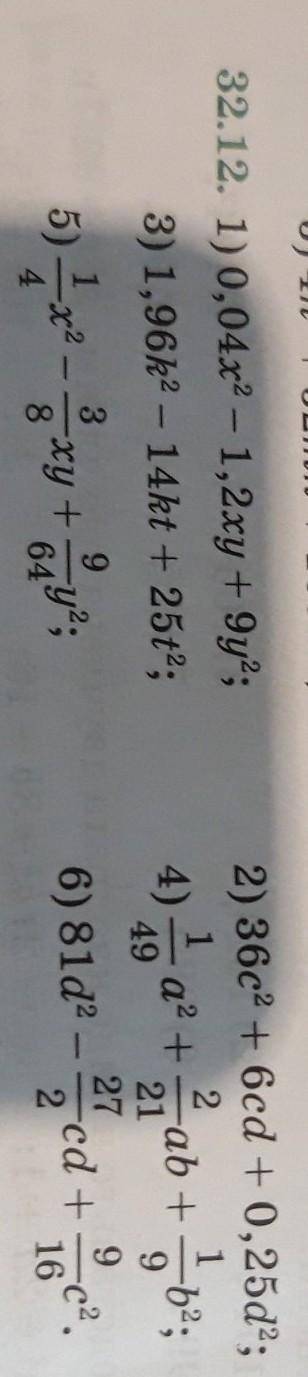 32.12. 1) 0,04x² – 1,2xy + 9y²; 2) 36c² + 6cd + 0,25d²;
3) 1,96k² – 14kt + 25t²; 4) 1/49 a² + 2/21 ab + 1/9 b²;
5) 1/4 x² – 3/8 xy + 9/64 y²; 6) 81d² – 27/2 cd + 9/16 c².